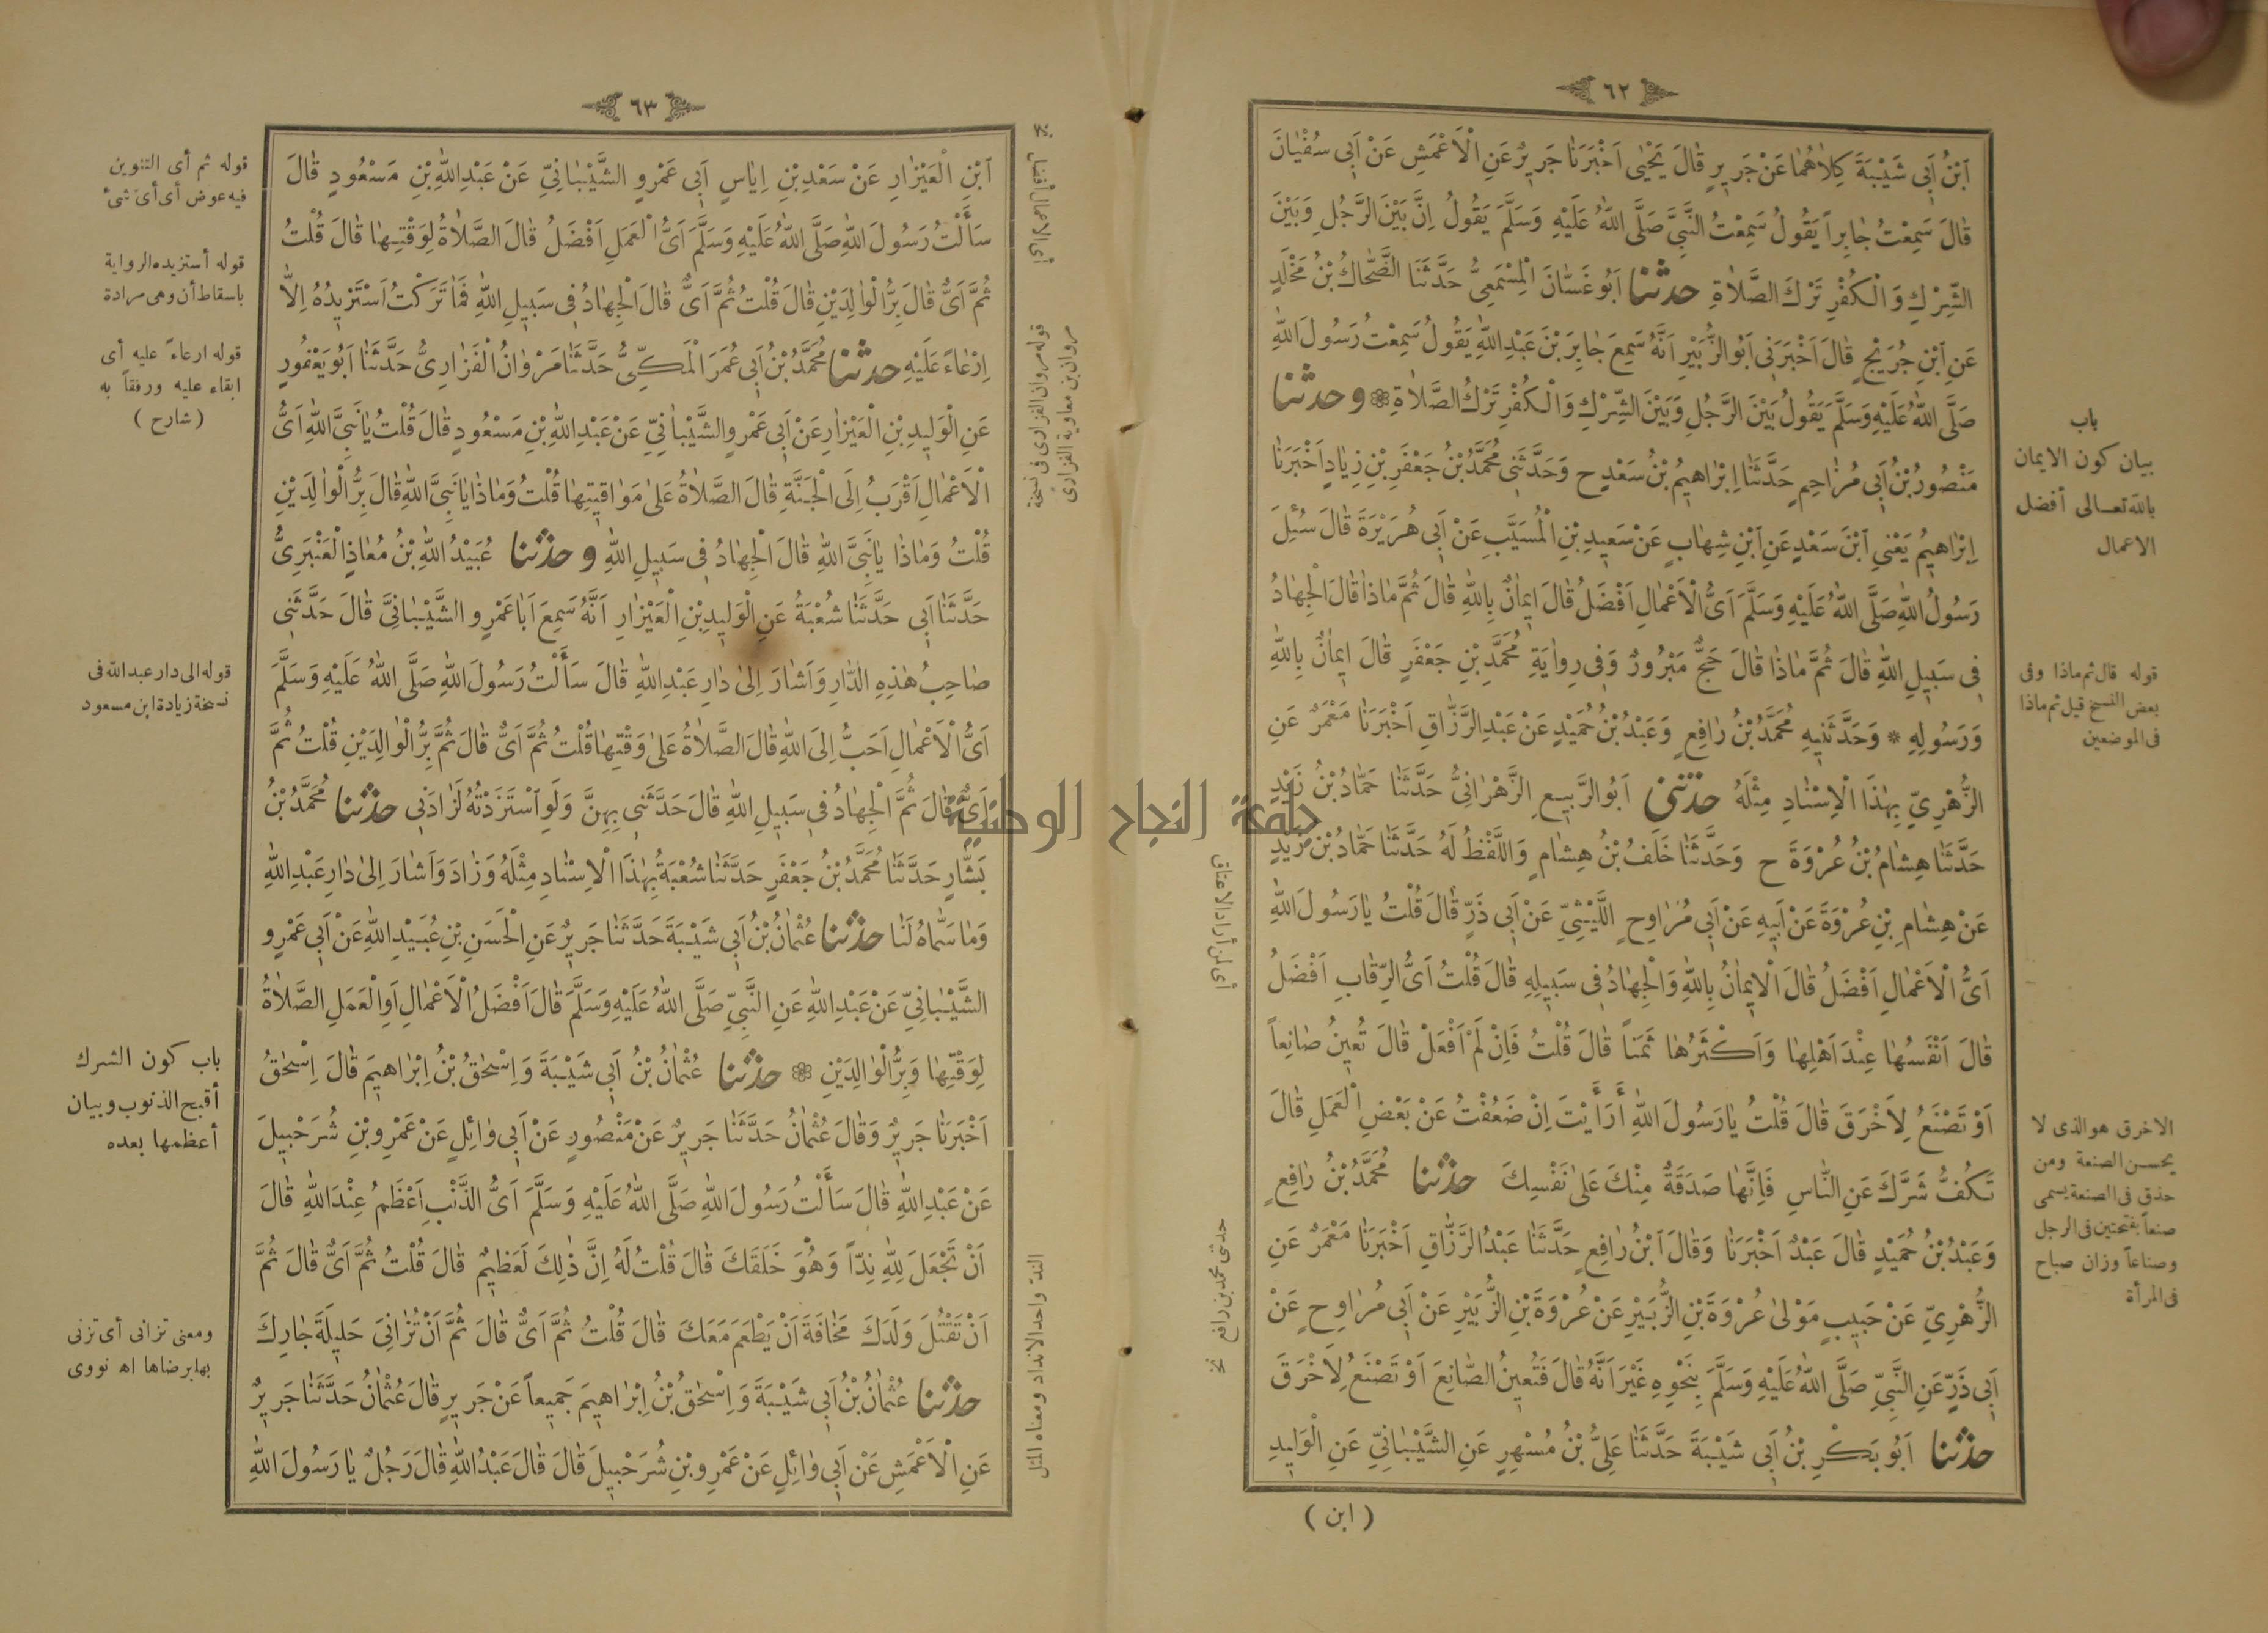 ٦٢
اَبْنُ اَبِى شَيْبَةَ كِلاٰهُمٰا عَنْ جَرِيرٍ قٰالَ يَحْيٰى اَخْبَرَنٰا جَرِيرٌ عَنِ الْاَعْمَشِ عَنْ اَبِى سُفْيٰانَ
قٰالَ سَمِعْتُ جٰابِراً يَقُولُ سَمِعْتُ النَّبِىَّ صَلَّى اللّٰهُ عَلَيْهِ وَسَلَّمَ يَقُولُ اِنَّ بَيْنَ الرَّجُلِ وَبَيْنَ
الشِّرْكِ وَالْكُفْرِ تَرْكَ الصَّلاٰةِ حدثنا اَبُو غَسّٰانَ الْمِسْمَعِىُّ حَدَّثَنَا الضَّحّٰاكُ بْنُ مَخْلَدٍ
عَنِ اَبْنِ جُرَيْجٍ قٰالَ اَخْبَرَنِى اَبُو الزُّبَيْرِ اَنَّهُ سَمِعَ جٰابِرَ بْنَ عَبْدِ اللّٰهِ يَقُولُ سَمِعْتُ رَسُولَ اللّٰهِ
صَلَّى اللّٰهُ عَلَيْهِ وَسَلَّمَ يَقُولُ بَيْنَ الرَّجُلِ وَبَيْنَ الشِّرْكِ وَالْكُفْرِ تَرْكُ الصَّلاٰةِ ۞ وحدثنا
مَنْصُورُ بْنُ اَبِى مُزٰاحِمٍ حَدَّثَنٰا اِبْرٰاهِيمُ بْنُ سَعْدٍ ح وَحَدَّثَنِى مُحَمَّدُ بْنُ جَعْفَرِ بْنِ زِيٰادٍ اَخْبَرَنٰا
اِبْرٰاهِيمُ يَعْنِى اَبْنَ سَعْدٍ عَنِ اَبْنِ شِهٰابٍ عَنْ سَعِيدِ بْنِ الْمُسَيَّبِ عَنْ اَبِى هُرَيْرَةَ قٰالَ سُئِلَ
رَسُولُ اللّٰهِ صَلَّى اللّٰهُ عَلَيْهِ وَسَلَّمَ اَىُّ الْاَعْمٰالِ اَفْضَلُ قٰالَ اِيمٰانٌ بِاللّٰهِ قٰالَ ثُمَّ مٰاذٰا قٰالَ الْجِهٰادُ
فِى سَبِيلِ اللّٰهِ قٰالَ ثُمَّ مٰاذٰا قٰالَ حَجٌّ مَبْرُورٌ وَفِى رِوٰايَةِ مُحَمَّدِ بْنِ جَعْفَرٍ قٰالَ اِيمٰانٌ بِاللّٰهِ
وَرَسُولِهِ * وَحَدَّثَنِيهِ مُحَمَّدُ بْنُ رٰافِعٍ وَعَبْدُ بْنُ حُمَيْدٍ عَنْ عَبْدِ الرَّزّٰاقِ اَخْبَرَنٰا مَعْمَرٌ عَنِ
الزُّهْرِىِّ بِهٰذَا الْاِسْنٰادِ مِثْلَهُ حدثنى اَبُو الرَّبِيعِ الزَّهْرٰانِىُّ حَدَّثَنٰا حَمّٰادُ بْنُ زَيْدٍ
حَدَّثَنٰا هِشٰامُ بْنُ عُرْوَةَ ح وَحَدَّثَنٰا خَلَفُ بْنُ هِشٰامٍ وَاللَّفْظُ لَهُ حَدَّثَنٰا حَمّٰادُ بْنُ زَيْدٍ
عَنْ هِشٰامِ بْنِ عُرْوَةَ عَنْ اَبِيهِ عَنْ اَبِى مُرٰاوِحٍ اللَّيْثِىِّ عَنْ اَبِى ذَرٍّ قٰالَ قُلْتُ يٰارَسُولَ اللّٰهِ
اَىُّ الْاَعْمٰالِ اَفْضَلُ قٰالَ الْاِيمٰانُ بِاللّٰهِ وَالْجِهٰادُ فِى سَبِيلِهِ قٰالَ قُلْتُ اَىُّ الرِّقٰابِ اَفْضَلُ
قٰالَ اَنْفَسُهٰا عِنْدَ اَهْلِهٰا وَاَكْثَرُهٰا ثَمَناً قٰالَ قُلْتُ فَاِنْ لَمْ اَفْعَلْ قٰالَ تُعِينُ صٰانِعاً
اَوْ تَصْنَعُ لِاَخْرَقَ قٰالَ قُلْتُ يٰارَسُولَ اللّٰهِ أَرَأَيْتَ اِنْ ضَعُفْتُ عَنْ بَعْضِ الْعَمَلِ قٰالَ
تَكُفُّ شَرَّكَ عَنِ النّٰاسِ فَاِنَّهٰا صَدَقَةٌ مِنْكَ عَلىٰ نَفْسِكَ حدثنا مُحَمَّدُ بْنُ رٰافِعٍ
وَعَبْدُ بْنُ حُمَيْدٍ قٰالَ عَبْدٌ اَخْبَرَنٰا وَقٰالَ اَبْنُ رٰافِعٍ حَدَّثَنٰا عَبْدُ الرَّزّٰاقِ اَخْبَرَنٰا مَعْمَرٌ عَنِ
الزُّهْرِىِّ عَنْ حَبِيبٍ مَوْلىٰ عُرْوَةَ بْنِ الزُّبَيْرِ عَنْ عُرْوَةَ بْنِ الزُّبَيْرِ عَنْ اَبِى مُرٰاوِحٍ عَنْ
اَبِى ذَرٍّ عَنِ النَّبِىِّ صَلَّى اللّٰهُ عَلَيْهِ وَسَلَّمَ بِنَحْوِهِ غَيْرَ اَنَّهُ قٰالَ فَتُعِينُ الصّٰانِعَ اَوْ تَصْنَعُ لِاَخْرَقَ
حدثنا اَبُو بَكْرِ بْنُ اَبِى شَيْبَةَ حَدَّثَنٰا عَلِىُّ بْنُ مُسْهِرٍ عَنِ الشَّيْبٰانِىِّ عَنِ الْوَلِيدِ
( ابن )
باب
بيان كون الايمان
بالله تعالى أفضل
الاعمال
قوله قال ثم ماذا وفى
بعض النسخ قيل ثم ماذا
فى الموضعين
الاخرق هو الذى لا
يحسن الصنعة ومن
حذق فى الصنعة يسمى
صنعاً بفتحتين فى الرجل
وصناعاً وزان صباح
فى المرأة
حدثنى محمد بن رافع نخ
٦٣
اَبْنِ الْعَيْزٰارِ عَنْ سَعْدِ بْنِ اِيٰاسٍ اَبِى عَمْرٍو الشَّيْبٰانِىِّ عَنْ عَبْدِ اللّٰهِ بْنِ مَسْعُودٍ قٰالَ
سَأَلْتُ رَسُولَ اللّٰهِ صَلَّى اللّٰهُ عَلَيْهِ وَسَلَّمَ اَىُّ الْعَمَلِ اَفْضَلُ قٰالَ الصَّلاٰةُ لِوَقْتِهٰا قٰالَ قُلْتُ
ثُمَّ اَىٌّ قٰالَ بِرُّ الْوٰالِدَيْنِ قٰالَ قُلْتُ ثُمَّ اَىٌّ قٰالَ الْجِهٰادُ فِى سَبِيلِ اللّٰهِ فَمٰا تَرَكْتُ اَسْتَزِيدُهُ اِلاّٰ
اِرْعٰاءً عَلَيْهِ حدثنا مُحَمَّدُ بْنُ اَبِى عُمَرَ الْمَكِّىُّ حَدَّثَنٰا مَرْوٰانُ الْفَزٰارِىُّ حَدَّثَنٰا اَبُو يَعْفُورٍ
عَنِ الْوَلِيدِ بْنِ الْعَيْزٰارِ عَنْ اَبِى عَمْرٍو الشَّيْبٰانِىِّ عَنْ عَبْدِ اللّٰهِ بْنِ مَسْعُودٍ قٰالَ قُلْتُ يٰانَبِىَّ اللّٰهِ اَىُّ
الْاَعْمٰالِ اَقْرَبُ اِلَى الْجَنَّةِ قٰالَ الصَّلاٰةُ عَلىٰ مَوٰاقِيتِهٰا قُلْتُ وَمٰاذٰا يٰانَبِىَّ اللّٰهِ قٰالَ بِرُّ الْوٰالِدَيْنِ
قُلْتُ وَمٰاذٰا يٰانَبِىَّ اللّٰهِ قٰالَ الْجِهٰادُ فِى سَبِيلِ اللّٰهِ وحدثنا عُبَيْدُ اللّٰهِ بْنُ مُعٰاذٍ الْعَنْبَرِىُّ
حَدَّثَنٰا اَبِى حَدَّثَنٰا شُعْبَةُ عَنِ الْوَلِيدِ بْنِ الْعَيْزٰارِ اَنَّهُ سَمِعَ اَبٰا عَمْرٍو الشَّيْبٰانِىَّ قٰالَ حَدَّثَنِى
صٰاحِبُ هٰذِهِ الدّٰارِ وَاَشٰارَ اِلىٰ دٰارِ عَبْدِ اللّٰهِ قٰالَ سَأَلْتُ رَسُولَ اللّٰهِ صَلَّى اللّٰهُ عَلَيْهِ وَسَلَّمَ
اَىُّ الْاَعْمٰالِ اَحَبُّ اِلَى اللّٰهِ قٰالَ الصَّلاٰةُ عَلىٰ وَقْتِهٰا قُلْتُ ثُمَّ اَىٌّ قٰالَ ثُمَّ بِرُّ الْوٰالِدَيْنِ قُلْتُ ثُمَّ
اَىٌّ قٰالَ ثُمَّ الْجِهٰادُ فِى سَبِيلِ اللّٰهِ قٰالَ حَدَّثَنِى بِهِنَّ وَلَوِ اَسْتَزَدْتُهُ لَزٰادَنِى حدثنا مُحَمَّدُ بْنُ
بَشّٰارٍ حَدَّثَنٰا مُحَمَّدُ بْنُ جَعْفَرٍ حَدَّثَنٰا شُعْبَةُ بِهٰذَا الْاِسْنٰادِ مِثْلَهُ وَزٰادَ وَاَشٰارَ اِلىٰ دٰارِ عَبْدِ اللّٰهِ
وَمٰا سَمّٰاهُ لَنٰا حدثنا عُثْمٰانُ بْنُ اَبِى شَيْبَةَ حَدَّثَنٰا جَرِيرٌ عَنِ الْحَسَنِ بْنِ عُبَيْدِ اللّٰهِ عَنْ اَبِى عَمْرٍو
الشَّيْبٰانِىِّ عَنْ عَبْدِ اللّٰهِ عَنِ النَّبِىِّ صَلَّى اللّٰهُ عَلَيْهِ وَسَلَّمَ قٰالَ اَفْضَلُ الْاَعْمٰالِ اَوِ الْعَمَلِ الصَّلاٰةُ
لِوَقْتِهٰا وَبِرُّ الْوٰالِدَيْنِ ۞ حدثنا عُثْمٰانُ بْنُ اَبِى شَيْبَةَ وَاِسْحٰقُ بْنُ اِبْرٰاهِيمَ قٰالَ اِسْحٰقُ
اَخْبَرَنٰا جَرِيرٌ وَقٰالَ عُثْمٰانُ حَدَّثَنٰا جَرِيرٌ عَنْ مَنْصُورٍ عَنْ اَبِى وٰائِلٍ عَنْ عَمْرِو بْنِ شُرَحْبِيلَ
عَنْ عَبْدِ اللّٰهِ قٰالَ سَأَلْتُ رَسُولَ اللّٰهِ صَلَّى اللّٰهُ عَلَيْهِ وَسَلَّمَ اَىُّ الذَّنْبِ اَعْظَمُ عِنْدَ اللّٰهِ قٰالَ
اَنْ تَجْعَلَ لِلّٰهِ نِدّاً وَهُوَ خَلَقَكَ قٰالَ قُلْتُ لَهُ اِنَّ ذٰلِكَ لَعَظِيمٌ قٰالَ قُلْتُ ثُمَّ اَىٌّ قٰالَ ثُمَّ
اَنْ تَقْتُلَ وَلَدَكَ مَخٰافَةَ اَنْ يَطْعَمَ مَعَكَ قٰالَ قُلْتُ ثُمَّ اَىٌّ قٰالَ ثُمَّ اَنْ تُزٰانِىَ حَلِيلَةَ جٰارِكَ
حدثنا عُثْمٰانُ بْنُ اَبِى شَيْبَةَ وَاِسْحٰقُ بْنُ اِبْرٰاهِيمَ جَمِيعاً عَنْ جَرِيرٍ قٰالَ عُثْمٰانُ حَدَّثَنٰا جَرِيرٌ
عَنِ الْاَعْمَشِ عَنْ اَبِى وٰائِلٍ عَنْ عَمْرِو بْنِ شُرَحْبِيلَ قٰالَ قٰالَ عَبْدُ اللّٰهِ قٰالَ رَجُلٌ يٰارَسُولَ اللّٰهِ
قوله ثم أى التنوين
فيه عوض أى أىّ شئ
قوله أستزيده الرواية
باسقاط أن وهى مرادة
قوله ارعاءً عليه أى
ابقاء عليه ورفقاً به
( شارح )
قوله الى دار عبدالله فى
نسخة زيادة ابن مسعود
باب كون الشرك
أقبح الذنوب وبيان
أعظمها بعده
ومعنى تزانى أى تزنى
بها برضاها اه نووى
قوله مروان الفزارى فى نسخة
مروان بن معاوية الفزارى
الندّ واحد الانداد ومعناه المثل